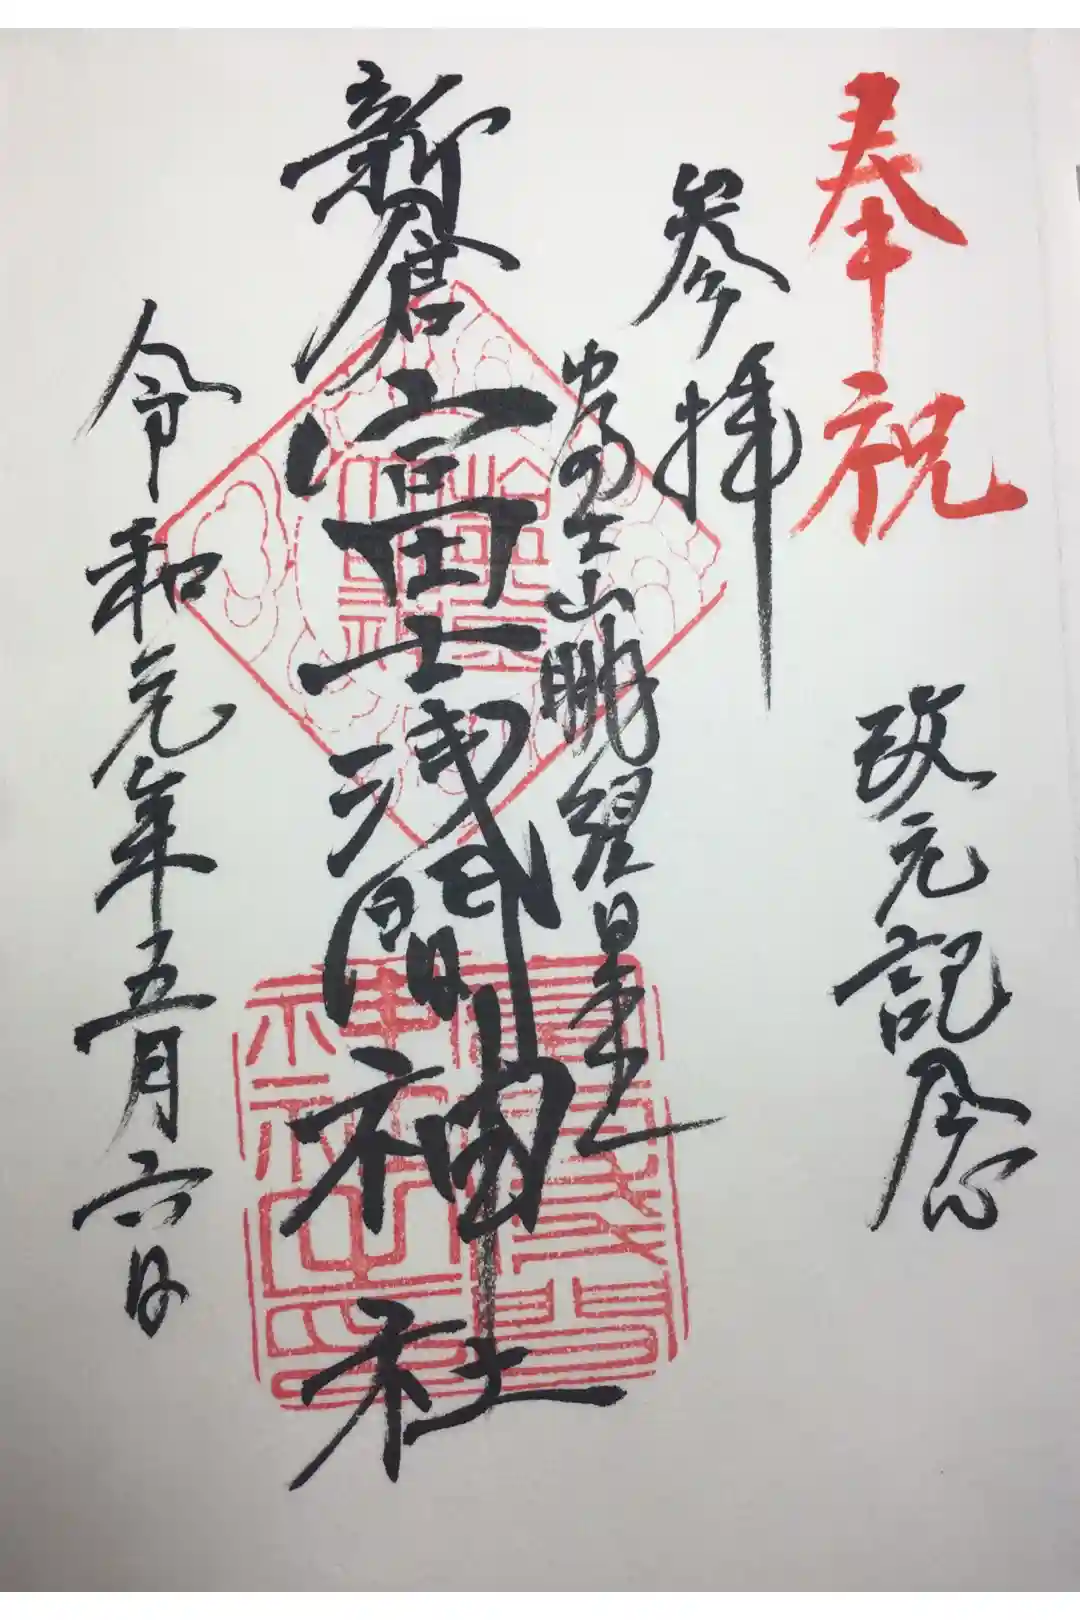 奉祝
改元記念
参拝
富士山眺望
新倉富士浅間神社
令和元年五月六日